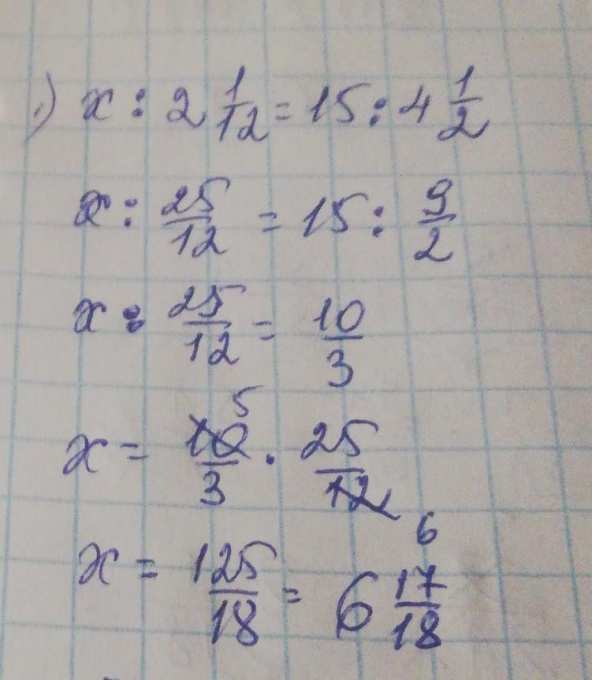 1) x : 2 1/12 = 15 : 4 1/2
x : 25/12 = 15 : 9/2
x : 25/12 = 10/3
x = 10/3 5 · 25/12 6
x = 125/18 = 6 17/18